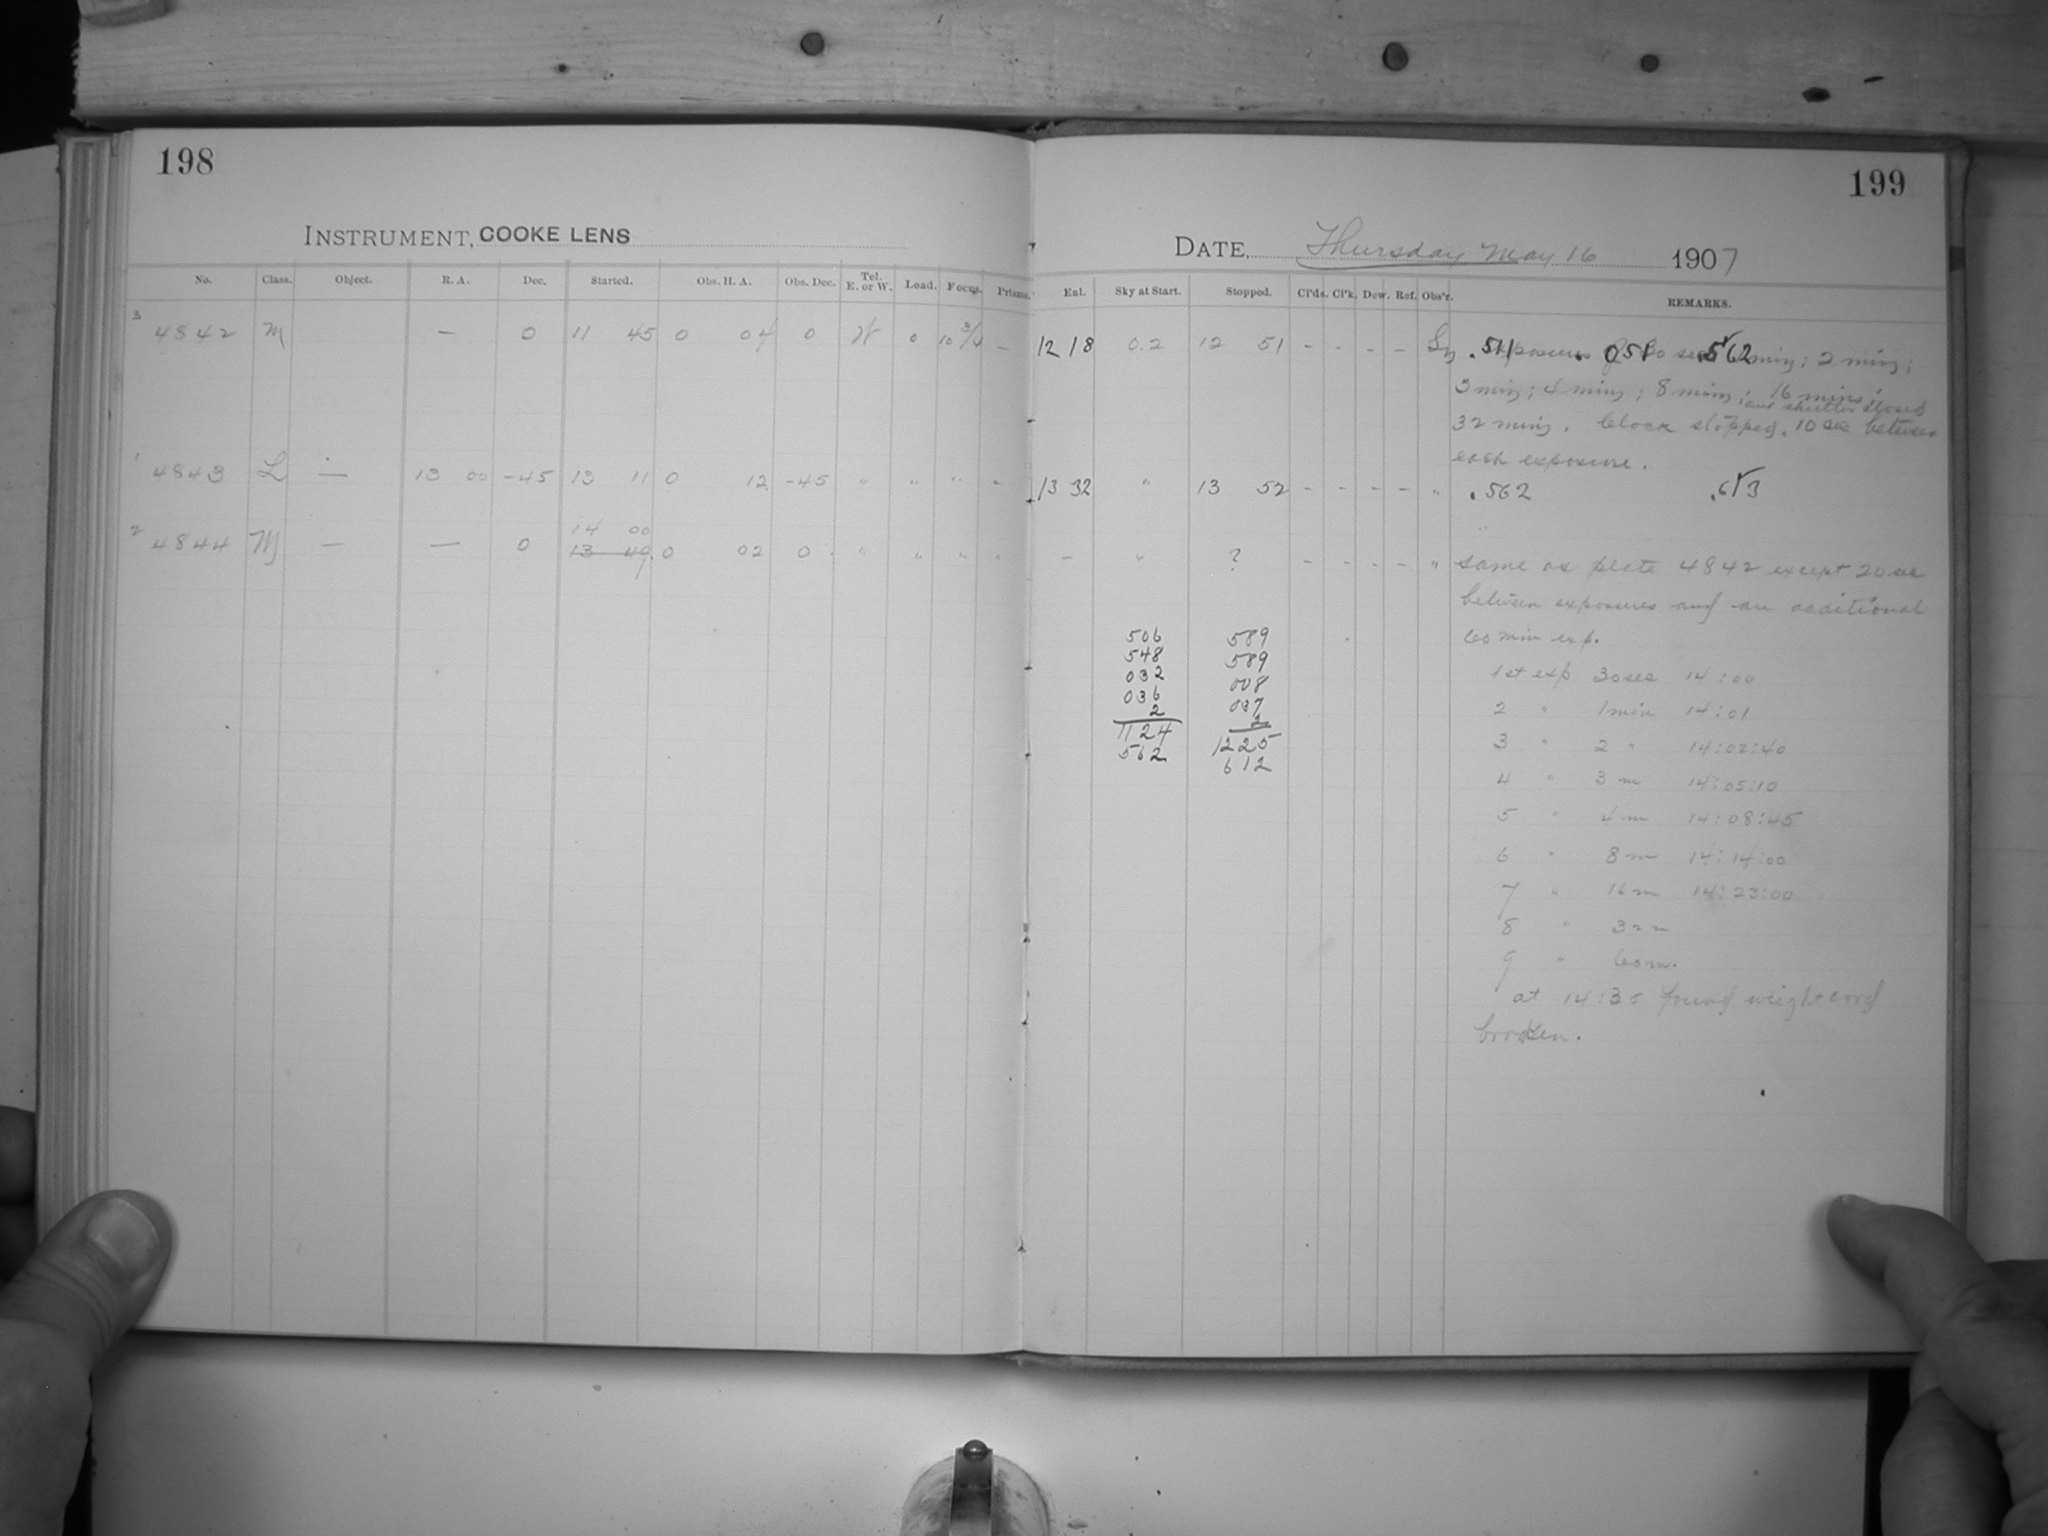 198
199
INSTRUMENT, COOKE LENS
DATE, Thursday May 16 1907
No. Class. Object. R. A. Dec. Started. Obs. H. A. Obs. Dec. Tel. E. or W. Load. Focus. Prisms. Ent. Sky at Start. Stopped. Cl'ds. Cl'k. Dew. Ref. Obs'r. REMARKS.
3 4842 M — 0 11 45 0 04 0 W 0 10 3/4 — 12 18 0.2 12 51 - - - - .511 .051 .562 min; 2 min;
3 min; 4 min; 8 min; 16 mins;
and shutter closed
32 mins. Clock stopped, 10 sec between
each exposure.
1 4843 L — 13 00 -45 13 11 0 12 -45 " " " - 13 32 " 13 52 - - - - " .562 .613
2 4844 M — — 0 14 00
13 49 0 02 0 " " " " - " ? - - - - " same as plate 4842 except 20 sec
between exposures and an additional
60 min exp.
506 589
548 589
032 008
036 037
2 2
1124 1225
562 612
1st exp 30 sec 14:00
2 " 1 min 14:01
3 " 2 " 14:02:40
4 " 3 m 14:05:10
5 " 4 m 14:08:45
6 " 8 m 14:14:00
7 " 16 m 14:23:00
8 " 32 m
9 " 60 m.
at 14:35 found weight cord
broken.